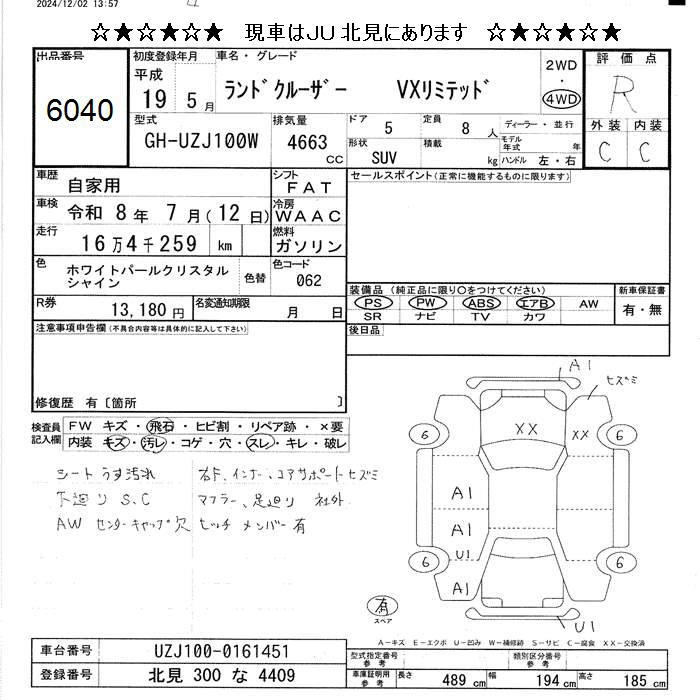 2024/12/02 13:57
☆★☆★☆★ 現車はJU北見にあります ☆★☆★☆★
出品番号
6040
初度登録年月
平成
19 5月
車名・グレード
ランドクルーザー VXリミテッド
2WD
・
4WD
評価点
R
外装 内装
C C
型式
GH-UZJ100W
排気量
4663
CC
ドア 5
定員 8人
ディーラー・並行
形状
SUV
積載 kg
モデル年式 年
ハンドル 左・右
車歴
自家用
シフト
FAT
車検
令和 8年 7月(12日)
冷房
WAAC
走行
16万4千259 km
燃料
ガソリン
色
ホワイトパールクリスタル
シャイン
色替
色コード
062
R券
13,180円
名変通知期限
月 日
セールスポイント(正常に機能するものに限ります)
装備品 (純正品に限り○をつけてください)
PS PW ABS エアB AW
SR ナビ TV カワ
新車保証書
有・無
後日品
注意事項申告欄(不具合内容等は具体的に記入して下さい)
修復歴 有〔箇所 〕
検査員
記入欄
FW キズ・飛石・ヒビ割・リペア跡・×要
内装 キズ・汚レ・コゲ・穴・スレ・キレ・破レ
シートうす汚れ
下廻りS.C
AW センターキャップ欠
右F、インナー、コアサポートヒズミ
マフラー、足廻り 社外
ヒッチメンバー有
A1
ヒズミ
XX
XX
6
6
A1
A1
U1
A1
6
6
U1
有
スペア
A-キズ E-エクボ U-凹み W-補修跡 S-サビ C-腐食 XX-交換済
車台番号
UZJ100-0161451
登録番号
北見 300 な 4409
型式指定番号
参考
類別区分番号
参考
車庫証明用
参考
長さ 489 cm
幅 194 cm
高さ 185 cm